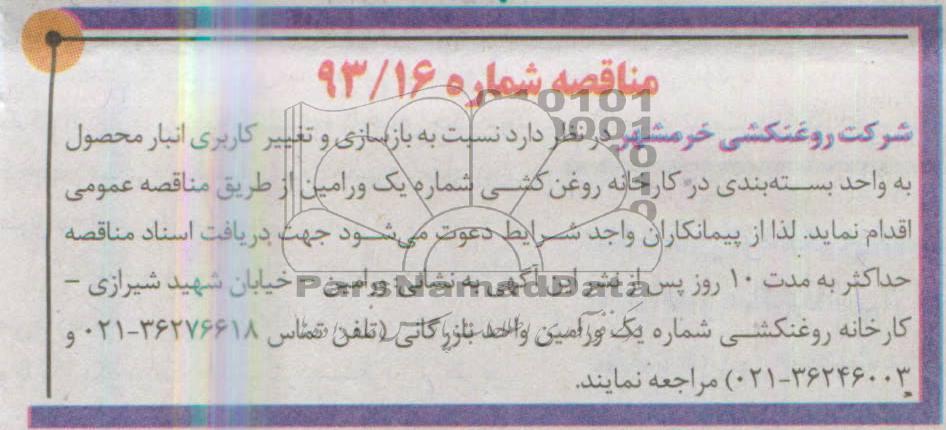 مناقصه شماره ۹۳/۱۶
شرکت روغنکشی خرمشهر در نظر دارد نسبت به بازسازی و تغییر کاربری انبار محصول
به واحد بسته‌بندی در کارخانه روغن کشی شماره یک ورامین از طریق مناقصه عمومی
اقدام نماید. لذا از پیمانکاران واجد شرایط دعوت می‌شود جهت دریافت اسناد مناقصه
حداکثر به مدت ۱۰ روز پس از نشر این آگهی به نشانی ورامین - خیابان شهید شیرازی -
کارخانه روغنکشی شماره یک ورامین واحد بازرگانی (تلفن تماس ۳۶۲۷۶۶۱۸-۰۲۱ و
۳۶۲۴۶۰۰۳-۰۲۱) مراجعه نمایند.
ParsNamadData